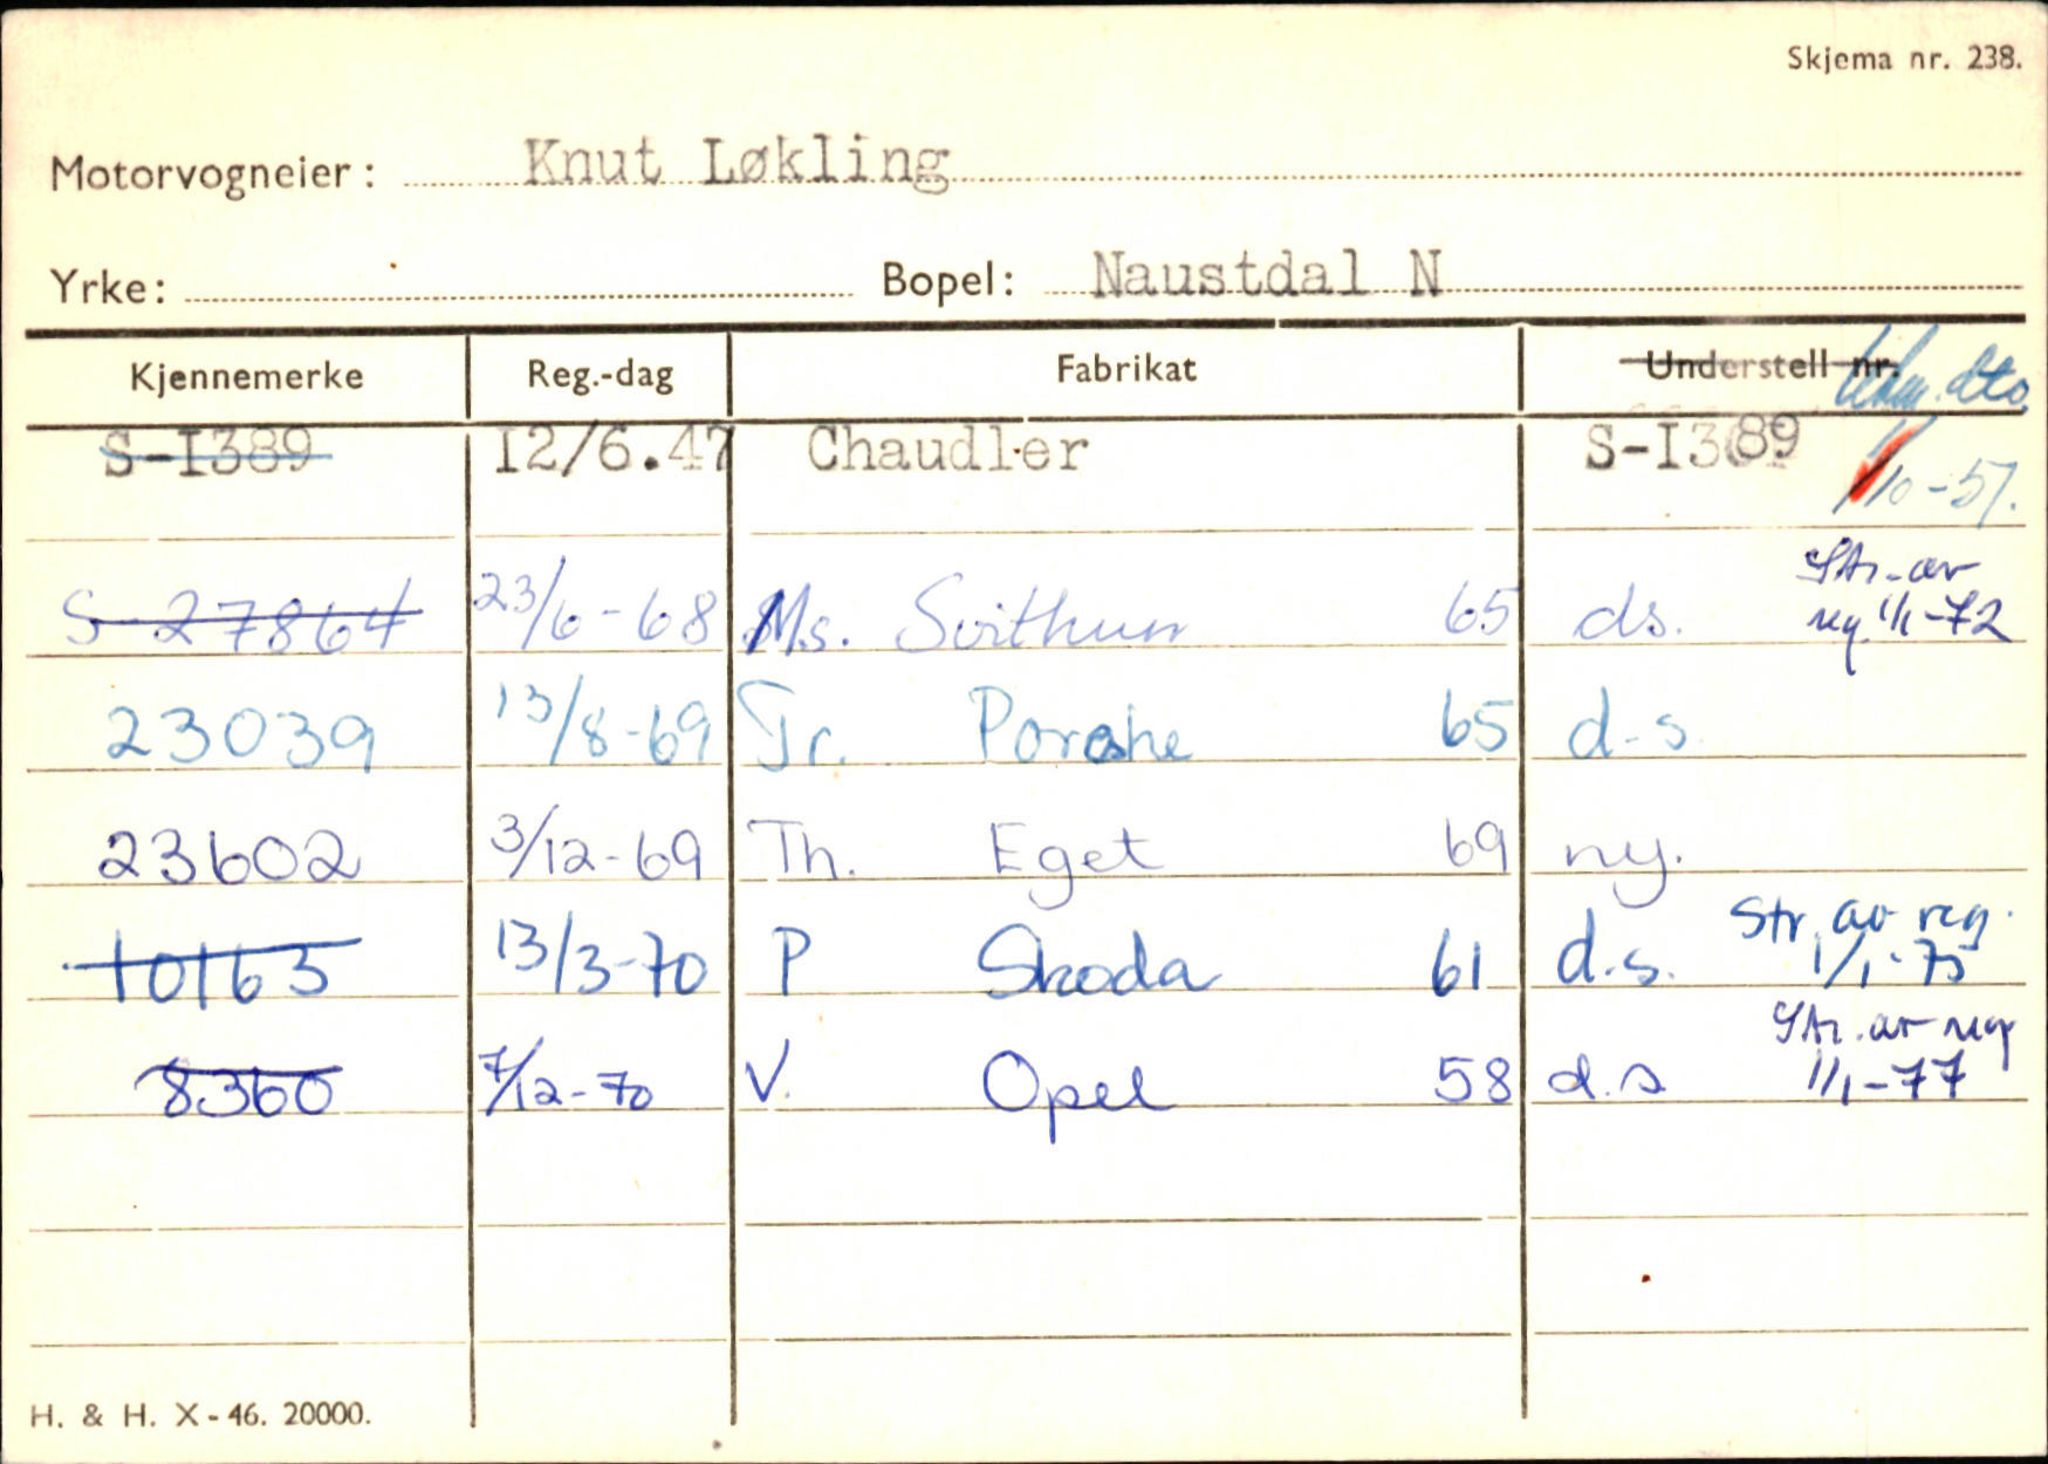 Skjema nr. 238.
Motorvogneier: Knut Løkling
Yrke: Bopel: Naustdal N
Kjennemerke Reg.-dag Fabrikat Understell nr. dto
S-I389 I2/6.47 Chaudler S-I389 1/10-57.
Str. av
S-27864 23/6-68 Ms. Svithun 65 ds. reg. 1/1-72
23039 13/8-69 Tr. Porshe 65 d-s
23602 3/12-69 Th. Eget 69 ny.
Str. av reg.
10163 13/3-70 P Skoda 61 d.s. 1/1-75
Str. av reg
8360 7/12-70 V. Opel 58 d.s 1/1-77
H. & H. X-46. 20000.